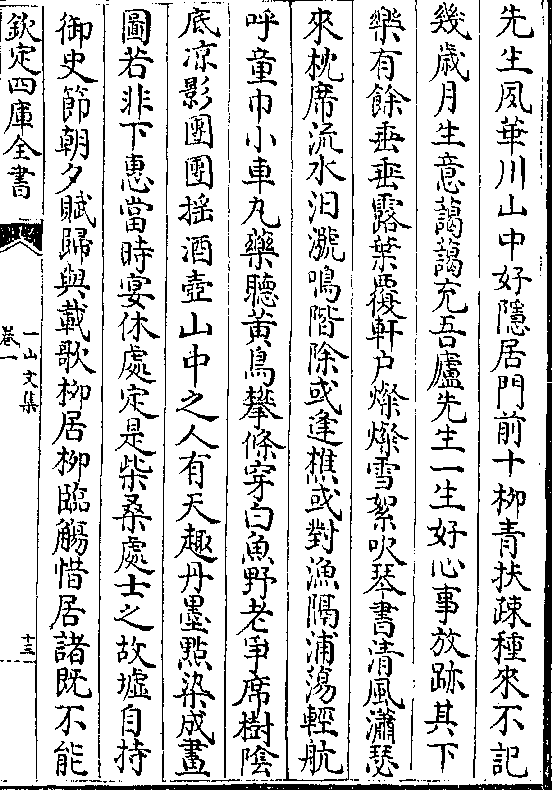 先生夙華川山中好隱居門前十柳青扶疎種來不記
幾歲月生意藹藹充吾廬先生一生好心事放跡其下
樂有餘垂垂露葉覆軒户燦燦雪絮吹琴書清風瀟瑟
來枕席流水汨㶁鳴階除或逢樵或對漁隔浦蕩輕航
呼童巾小車丸藥聽黃鳥攀條穿白魚野老爭席樹陰
底凉影團團揺酒壺山中之人有天趣丹墨點染成畫
圖若非下惠當時宴休處定是柴桑處士之故墟自持
御史節朝夕賦歸與載歌柳居柳臨觴惜居諸既不能
欽定四庫全書
一山文集
卷一
十三